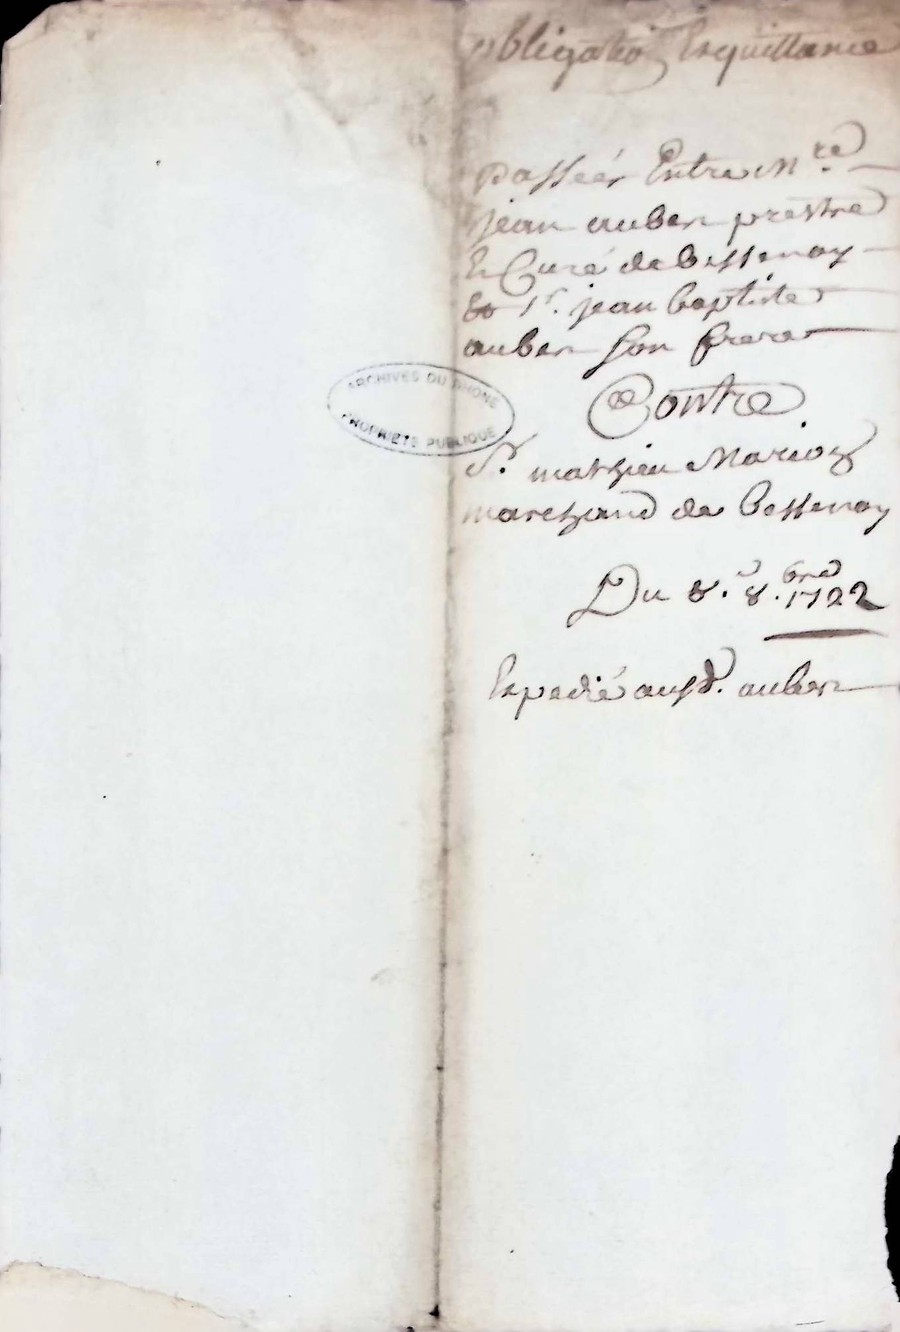 obligatio Enquittance
passées Entre M.re
jean auben prestre
Et Curé de bessenay
Et Sr. jean baptiste
auben son frere
Contre
Sr. mathieu Marion
marchand de bessenay
Du 8.e 8.bre 1722
Expedié ausd. auben
ARCHIVES DU RHONE
PROPRIÉTÉ PUBLIQUE